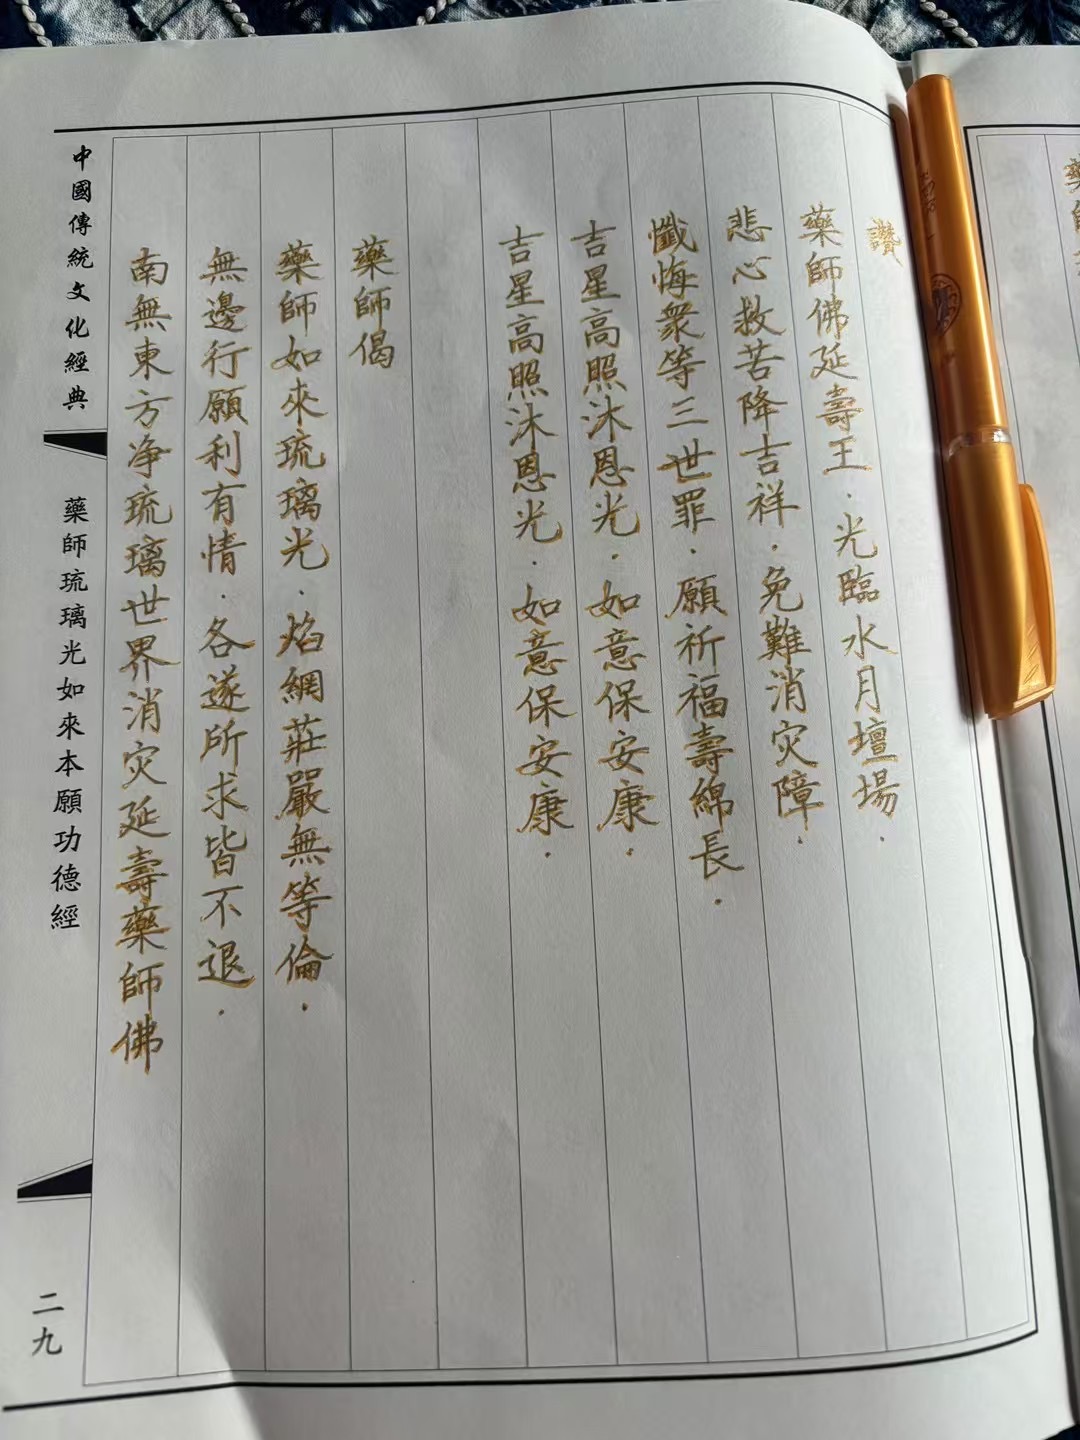 讚
藥師佛延壽王．光臨水月壇場．
悲心救苦降吉祥．免難消灾障．
懺悔衆等三世罪．願祈福壽綿長．
吉星高照沐恩光．如意保安康．
吉星高照沐恩光．如意保安康．
藥師偈
藥師如來琉璃光．焰網莊嚴無等倫．
無邊行願利有情．各遂所求皆不退．
南無東方净琉璃世界消灾延壽藥師佛
中國傳統文化經典
藥師琉璃光如來本願功德經
二九